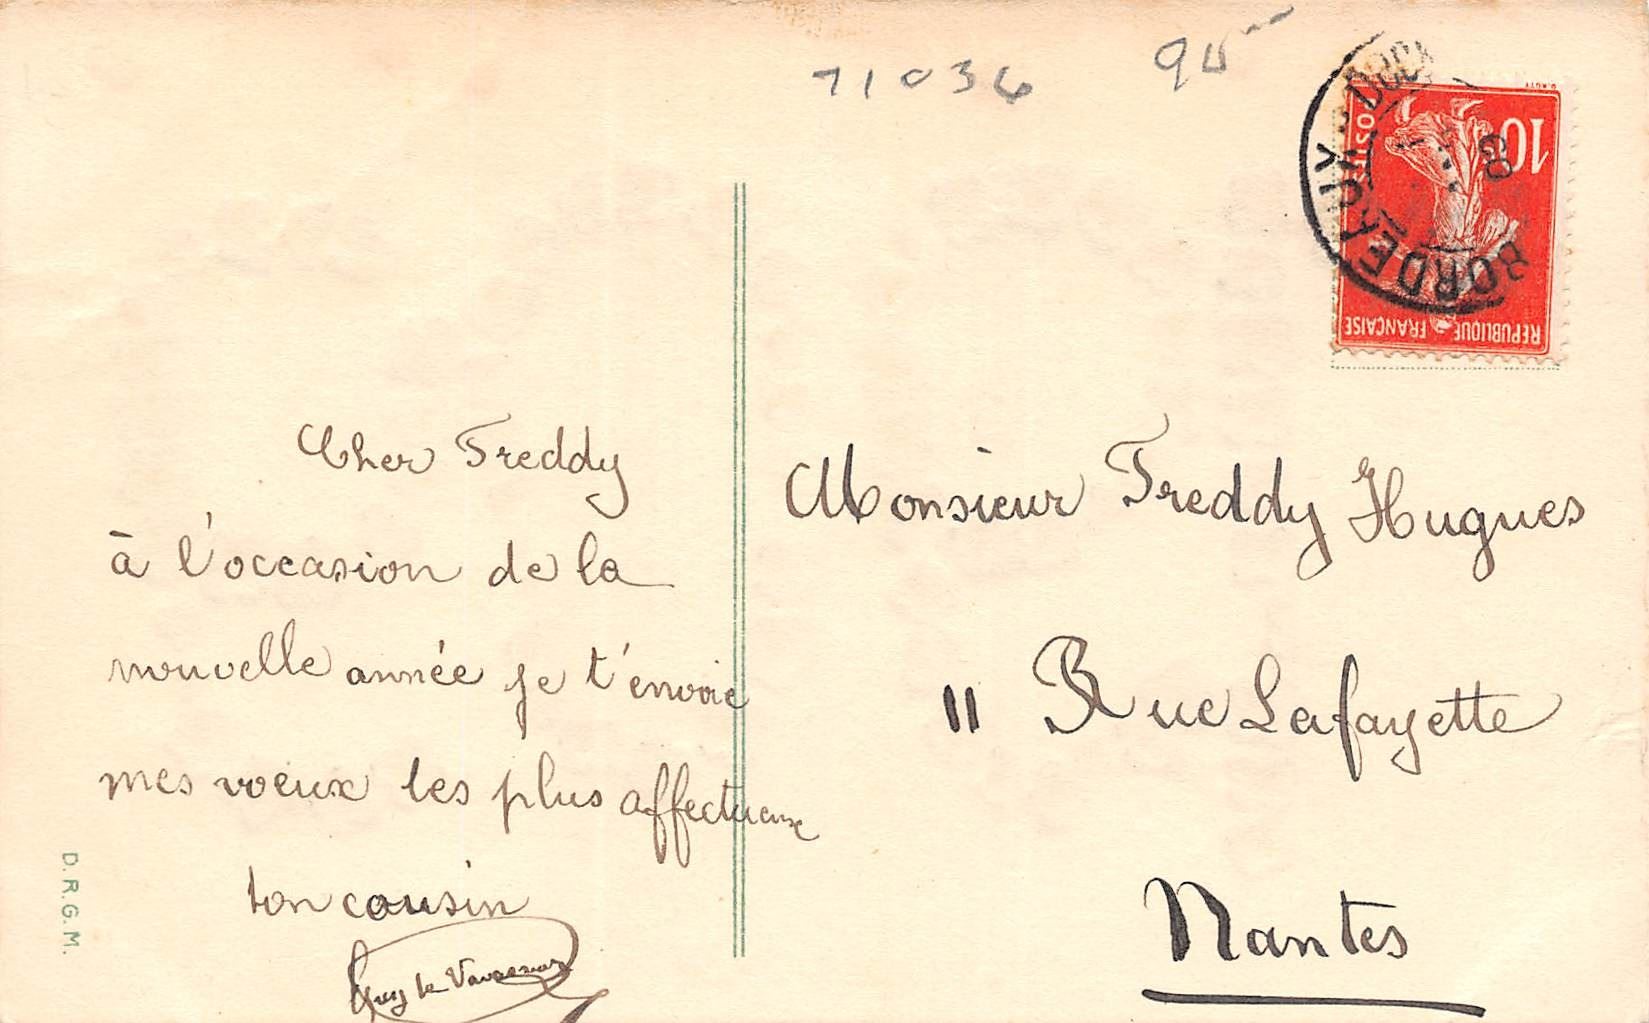 71036
Cher Freddy
à l'occasion de la
nouvelle année je t'envoie
mes voeux les plus affectueux
ton cousin
Guy le Vavasseur
D.R.G.M.
10
REPUBLIQUE FRANCAISE
BORDEAUX
Monsieur Freddy Hugues
11 Rue Lafayette
Nantes